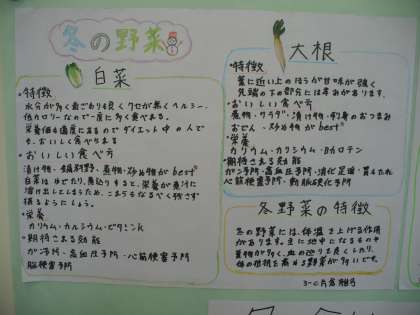 冬の野菜
白菜
・特徴
水分が多く歯ごたえも良くクセが無くヘルシー。
低カロリーなので一度に多く食べれる。
栄養価も適度にあるのでダイエット中の人で
も、おいしく食べられる
・おいしい食べ方
漬け物・鍋料理・煮物・炒め物がbest
白菜はゆでたり、煮込りすると、栄養が煮汁に
溶け出してしまうため、こまらなるべく残さず
採るようにしよう。
・栄養
カリウム・カルシウム・ビタミンK
・期待される効能
ガン予防・高血圧予防・心筋梗塞予防
脳梗塞予防
大根
・特徴
葉に近い上のほうが甘味が強く
先端の下の部分には辛みがあります。
・おいしい食べ方
煮物・サラダ・漬け物・刺身のおつまみ
おでん・炒め物がbest
・栄養
カリウム・カルシウム・βカロテン
・期待される効能
ガン予防・高血圧予防・消化促進・胃もたれ
心筋梗塞予防・動脈硬化予防
冬野菜の特徴
冬の野菜には、体温を上げる作用
があります。主に地中になるものや
葉物が多く、血の巡りを良くしたり、
体の抵抗を高める野菜が多いです。